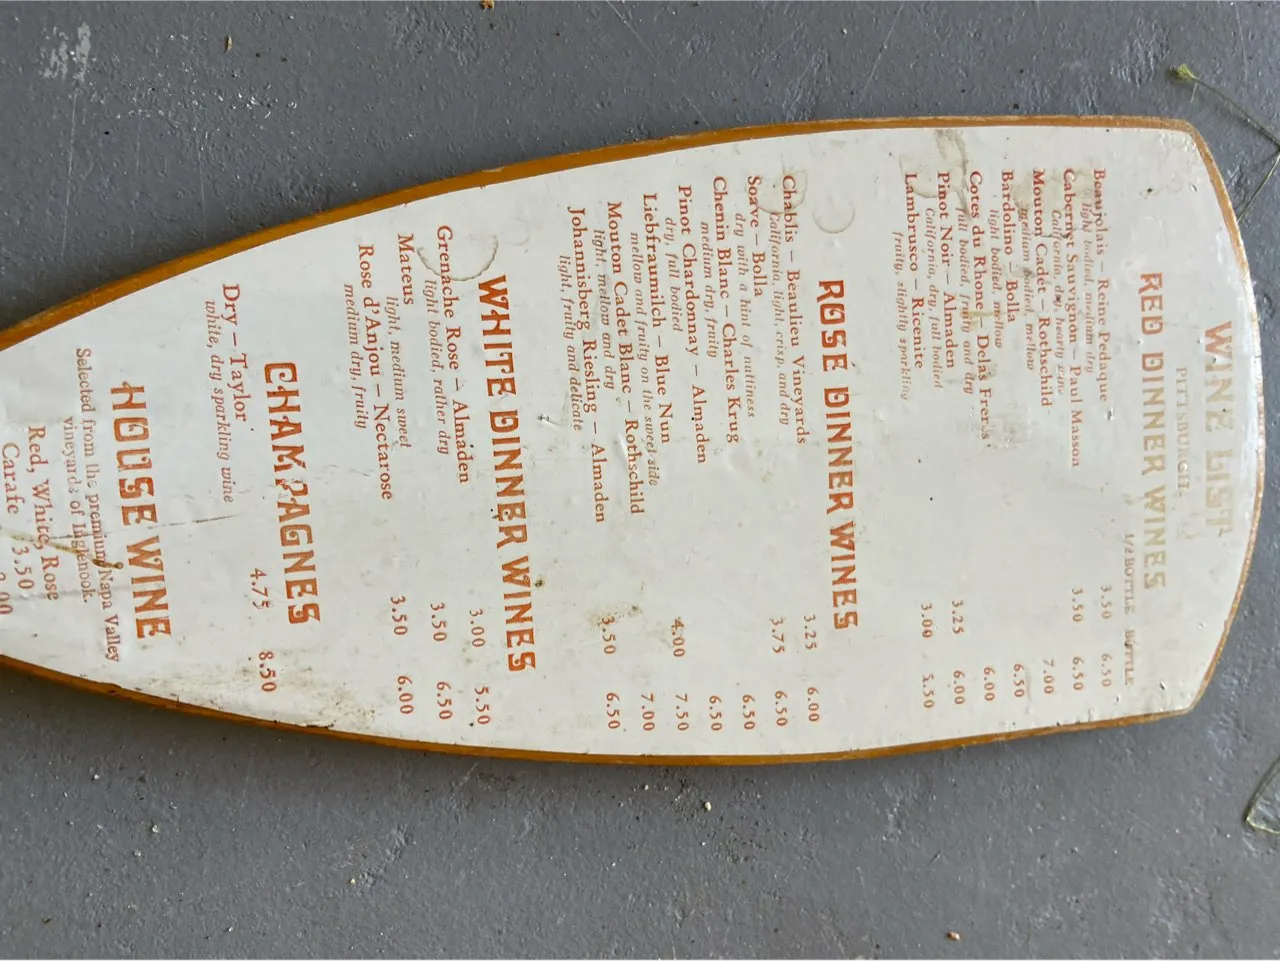 WINE LIST
PITTSBURGH,
RED DINNER WINES
1/2 BOTTLE BOTTLE
Beaujolais – Reine Pedaque 3.50 6.50
light bodied, medium dry
Cabernet Sauvignon – Paul Masson 3.50 6.50
California, dry, hearty wine
Mouton Cadet – Rothschild 7.00
medium bodied, mellow
Bardolino – Bolla 6.50
light bodied, mellow
Cotes du Rhone – Delas Freres 6.00
full bodied, fruity and dry
Pinot Noir – Almaden 3.25 6.00
California, dry, full bodied
Lambrusco – Ricenite 3.00 5.50
fruity, slightly sparkling
ROSE DINNER WINES
Chablis – Beaulieu Vineyards 3.25 6.00
California, light, crisp, and dry
Soave – Bolla 3.75 6.50
dry with a hint of nuttiness
Chenin Blanc – Charles Krug 6.50
medium dry, fruity
Pinot Chardonnay – Almaden 6.50
dry, full bodied
Liebfraumilch – Blue Nun 4.00 7.50
mellow and fruity on the sweet side
Monton Cadet Blanc – Rothschild 7.00
light, mellow and dry
Johannisberg Riesling – Almaden 3.50 6.50
light, fruity and delicate
WHITE DINNER WINES
Grenache Rose – Almaden 3.00 5.50
light bodied, rather dry
Mateus 3.50 6.50
light, medium sweet
Rose d'Anjou – Nectarose 3.50 6.00
medium dry, fruity
CHAMPAGNES
Dry – Taylor 4.75 8.50
white, dry sparkling wine
HOUSE WINE
Selected from the premium Napa Valley
vineyards of Inglenook.
Red, White, Rose
Carafe 3.50